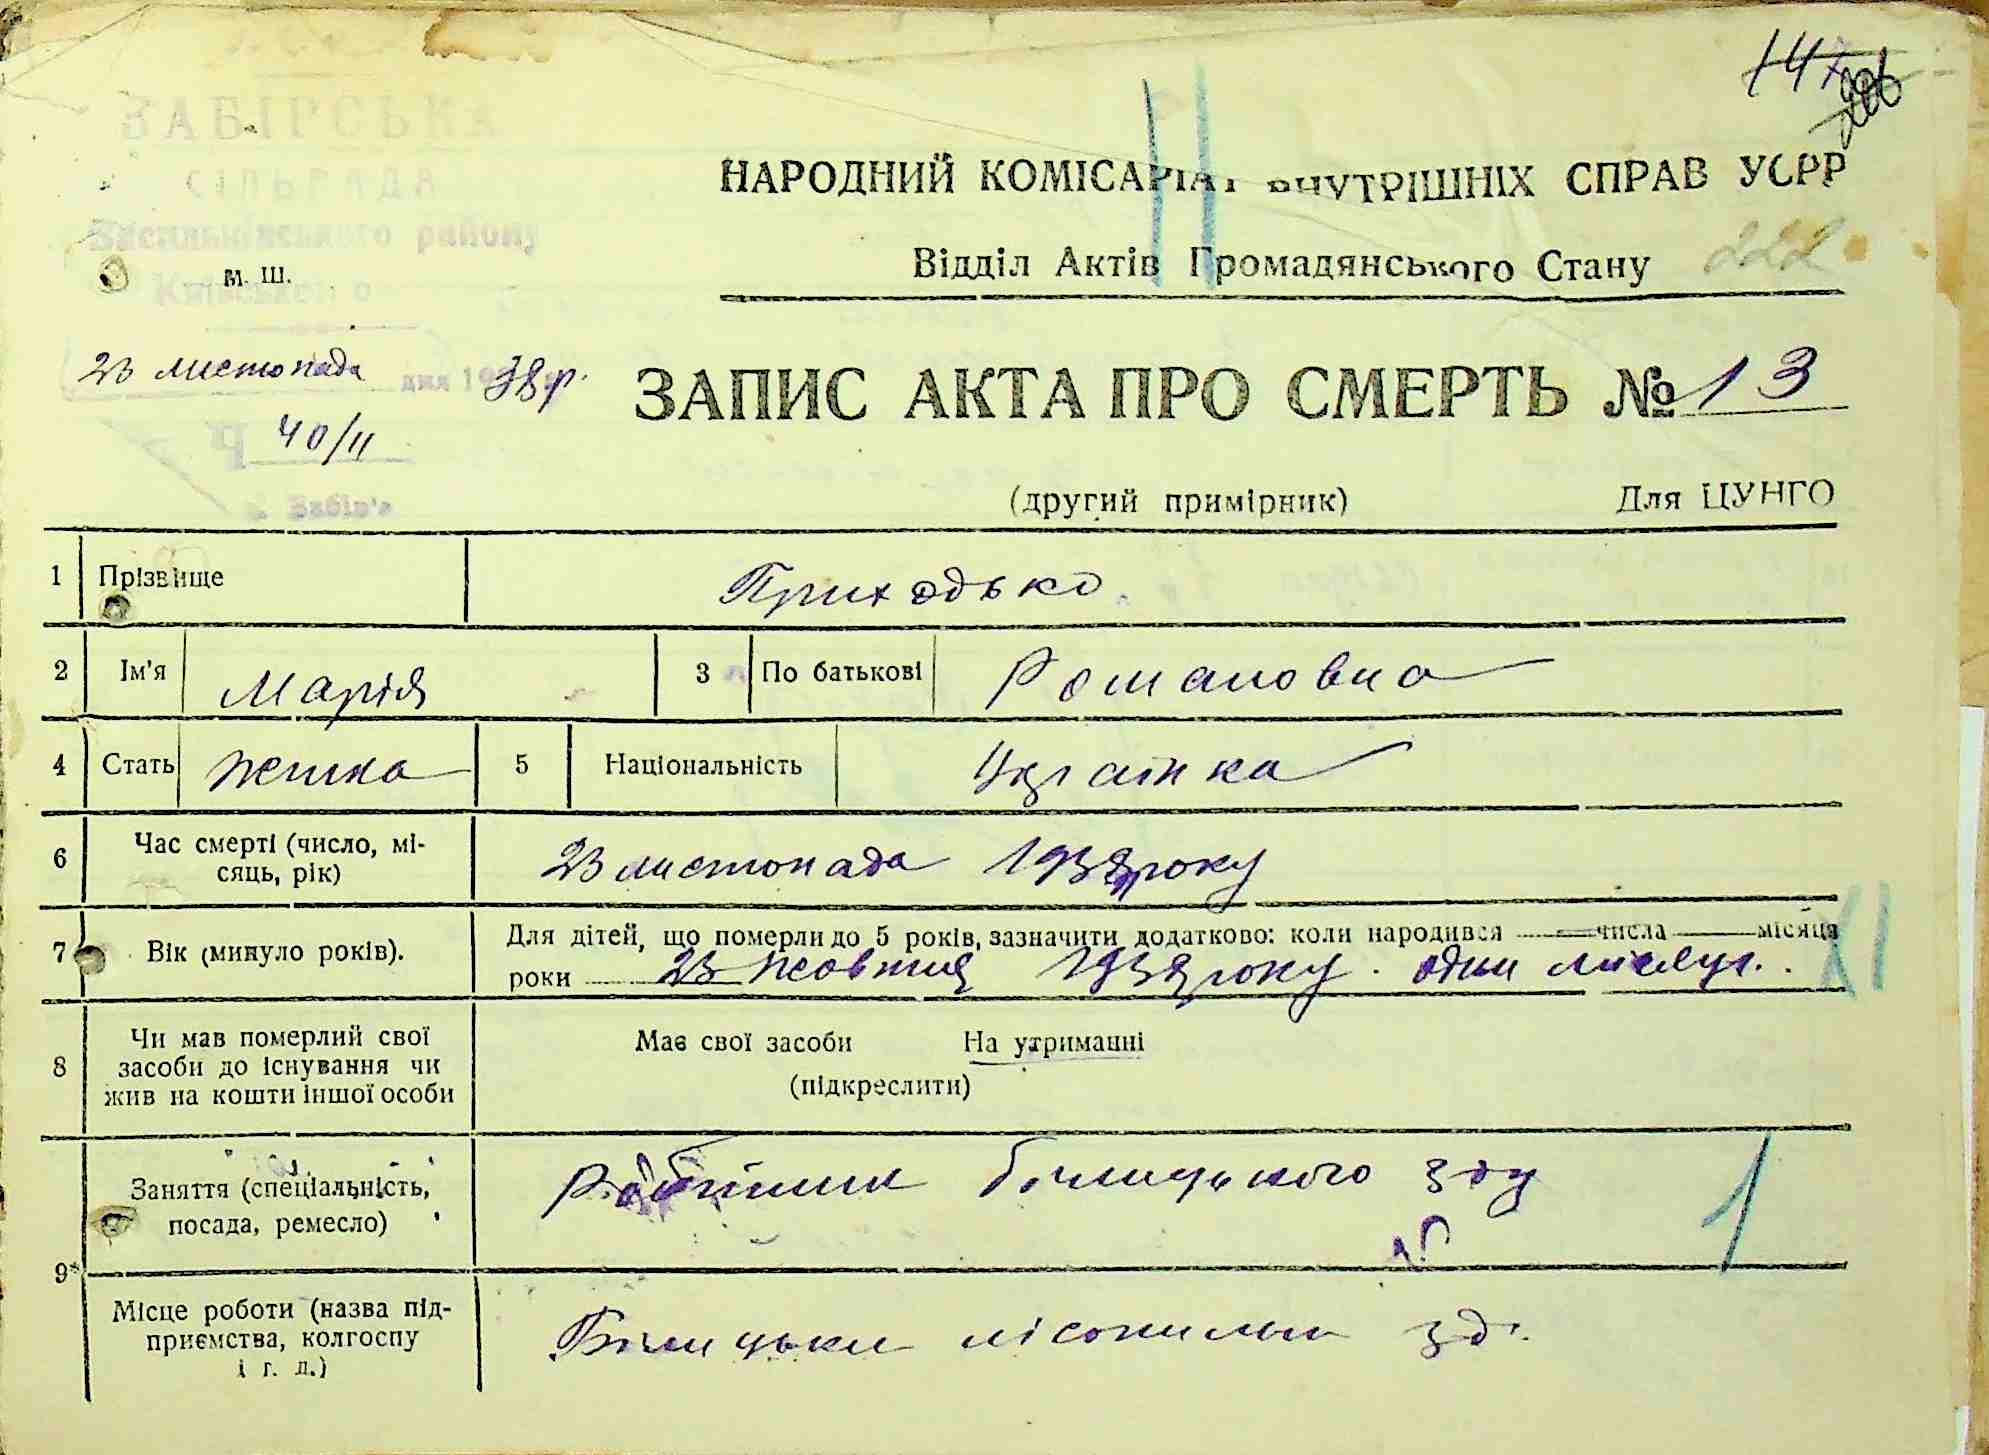 147
206
ЗАБІРСЬКА
СІЛЬРАДА
Васильківського району
Київської о
м. Ш.
НАРОДНИЙ КОМІСАРІАТ ВНУТРІШНІХ СПРАВ УСРР
Відділ Актів Громадянського Стану
222
23 листопада дня 1938 р.
Ч 40/11
с. Забір'я
ЗАПИС АКТА ПРО СМЕРТЬ № 13
(другий примірник) Для ЦУНГО
1 Прізвище Приходько
2 Ім'я Марія 3 По батькові Романовна
4 Стать жінка 5 Національність Українка
6 Час смерті (число, мі-
сяць, рік) 23 листопада 1938 року
7 Вік (минуло років). Для дітей, що померли до 5 років, зазначити додатково: коли народився числа місяця
роки 23 жовтня 1938 року. один місяць.
XI
8 Чи мав померлий свої
засоби до існування чи
жив на кошти іншої особи
Має свої засоби На утриманні
(підкреслити)
9* Заняття (спеціальність,
посада, ремесло) Робітник Білицького зду
1
Місце роботи (назва під-
приємства, колгоспу
і т. д.) Білицьки лісопильн зд.